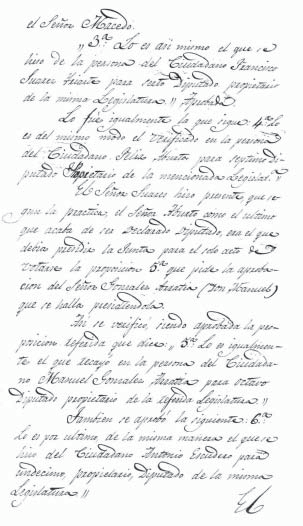 el Señor Macedo.
„ 3.ª Lo es asi mismo el que se
hiso de la persona del Ciudadano Francisco
Suares Iriarte para sesto Diputado propietario
de la misma Legislatura „ Aprobada
Lo fue igualmente la que sigue. 4.ª Lo
es del mismo modo el verificado en la persona
del Ciudadano Aburto para septimo Di-
putado Propietario de la mencionada Legislat.ª „
El Señor Suares hiso presente, que se-
gun la practica, el Señor Aburto como el ultimo
que acaba de ser declarado Diputado, era el que
debia presidir la Junta para el solo acto de
votarse la proposicion 5.ª que pide la aproba-
cion del Señor Gonzales (Don Manuel)
que se halla presidiendola.
Asi se verificó, siendo aprobada la pro-
posicion referida que dice: „ 5.ª Lo es igualmen-
te el que recayó en la persona del Ciudada-
no Manuel Gonzales para octavo
Diputado propietario de la referida Legislatura „
Tambien se aprobó la siguiente: 6.ª
Lo es por ultimo, de la misma manera el que se
hiso del Ciudadano Antonio Escudero para
undecimo, propietario, Diputado de la misma
Legislatura „
El